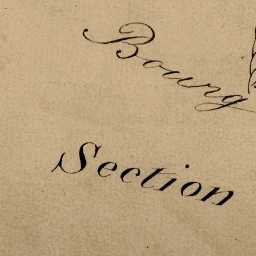 Bourg
Section